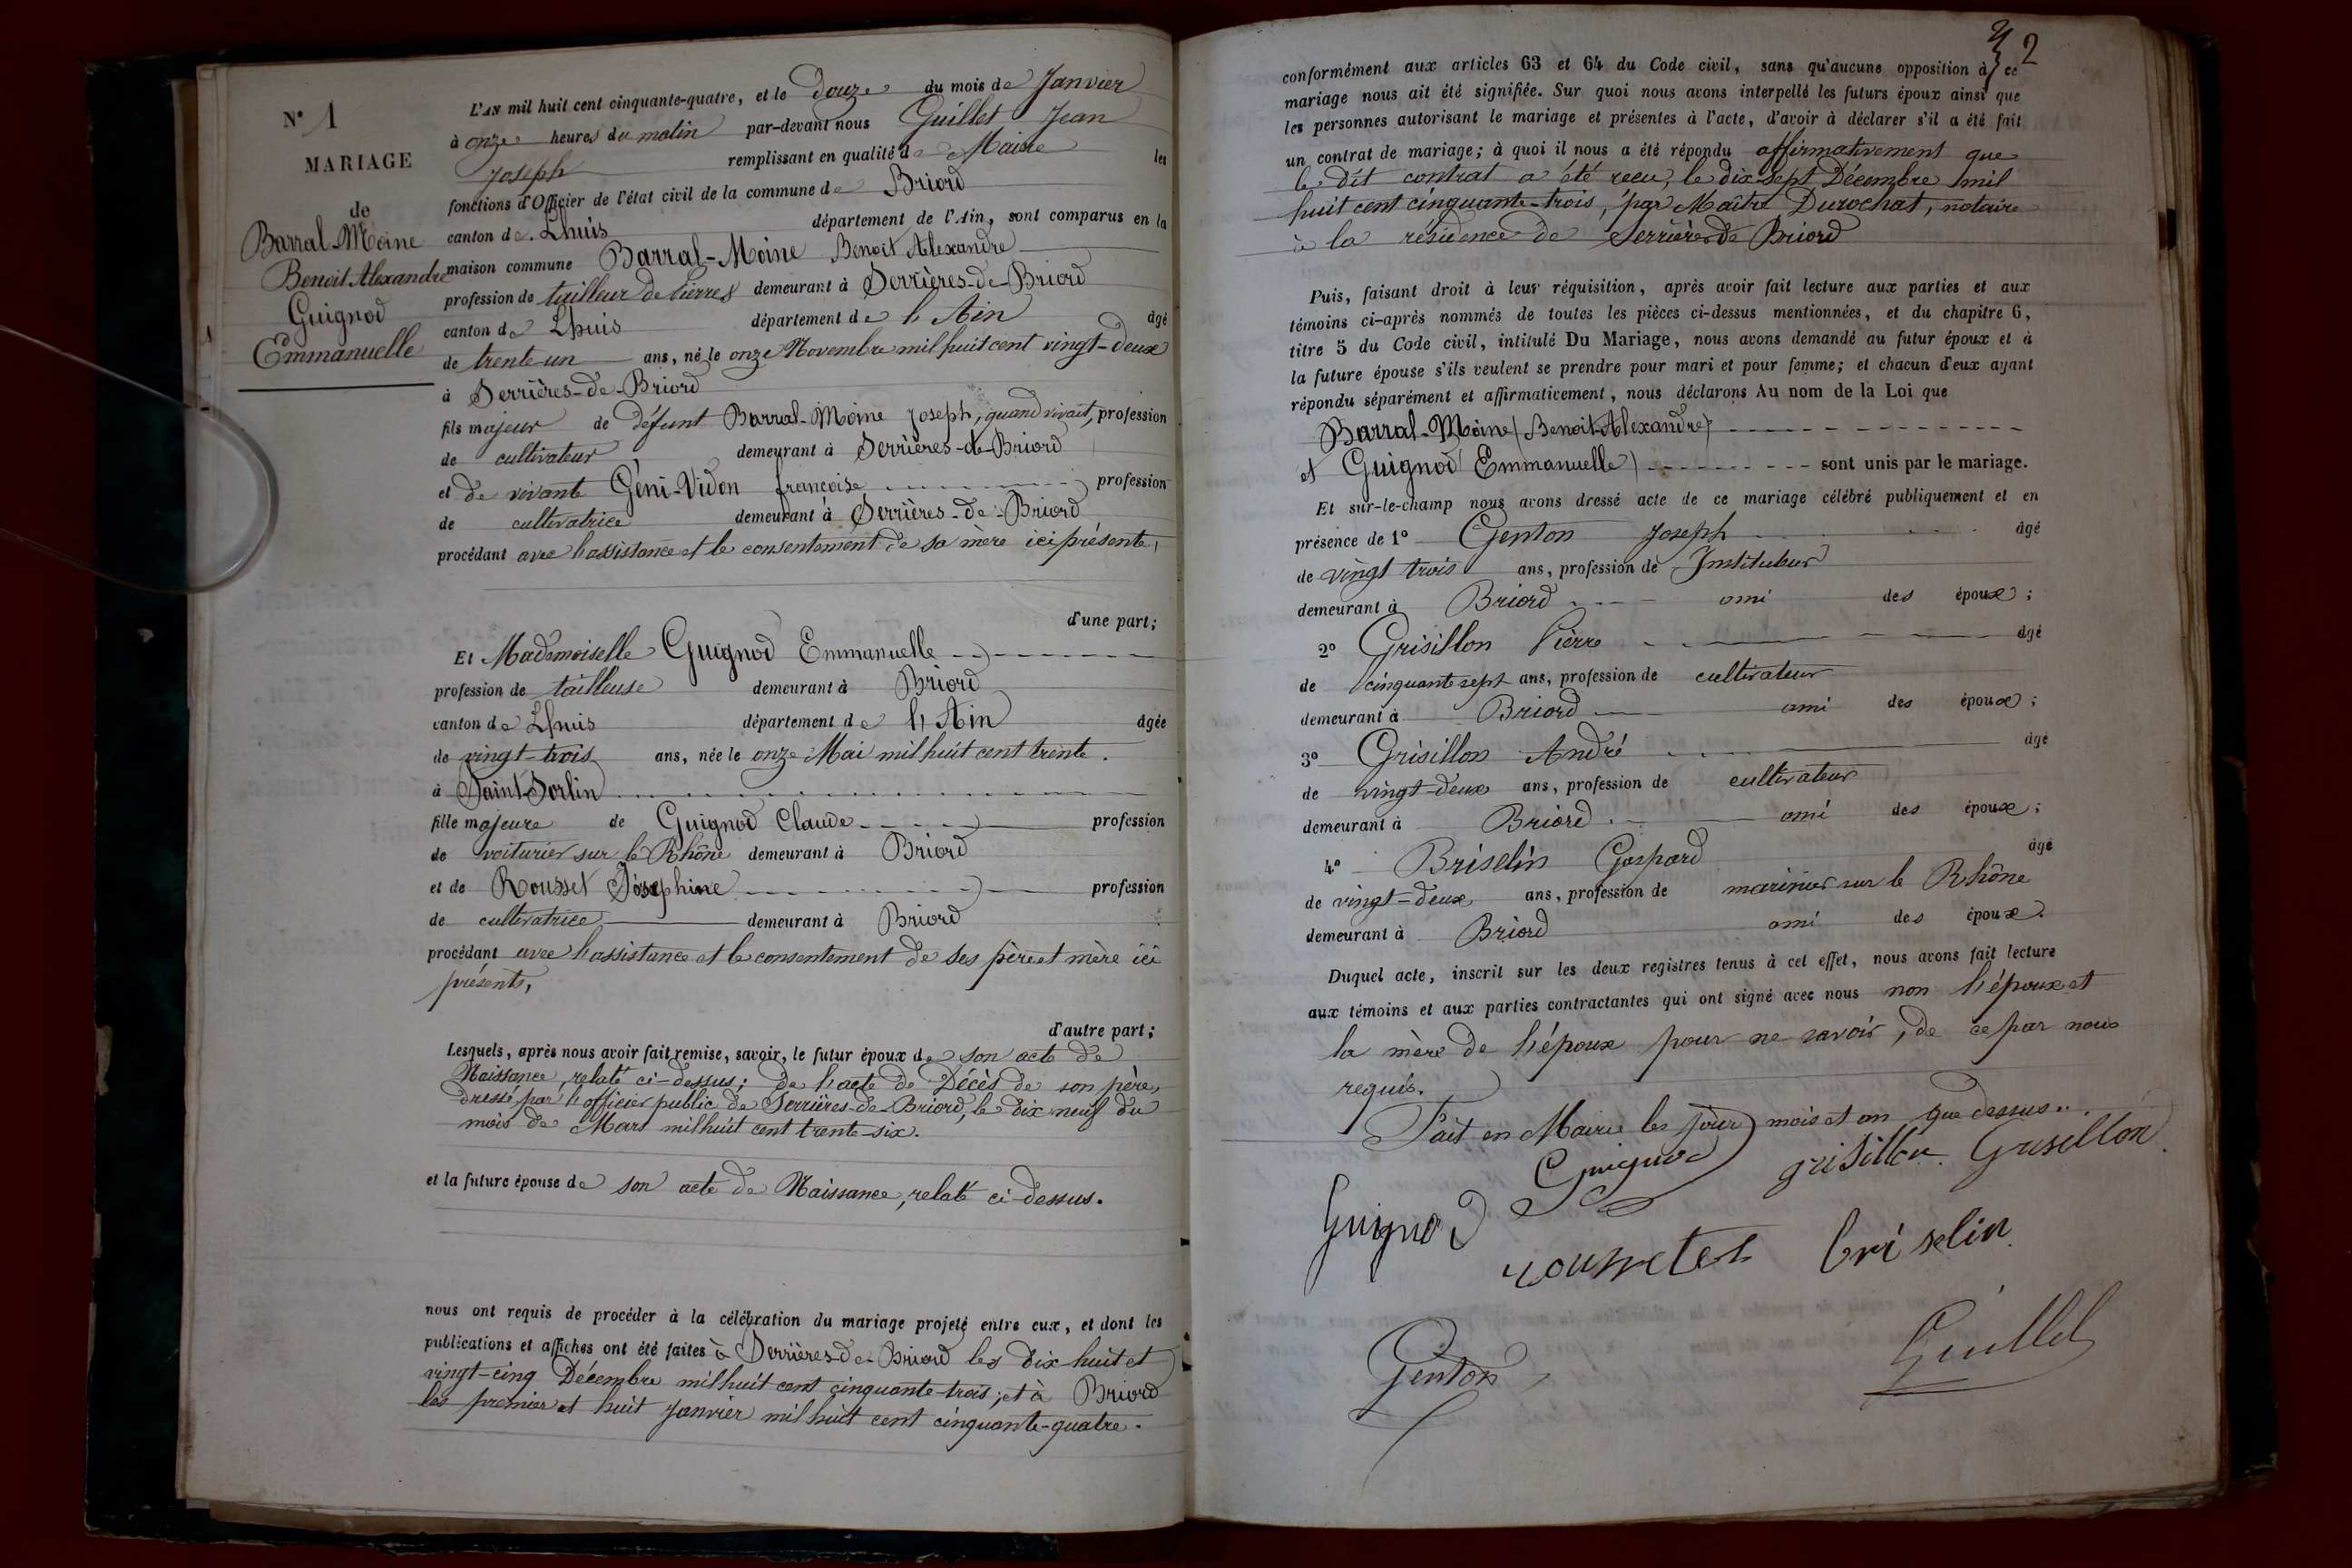 N° 1
MARIAGE
de
Barral-Moine
Benoit Alexandre
Guignod
Emmanuelle
L'AN mil huit cent cinquante-quatre, et le douze du mois de Janvier
à onze heures du matin par-devant nous Guillet Jean
Joseph remplissant en qualité de Maire les
fonctions d'Officier de l'état civil de la commune de Briord
canton de Lhuis département de l'Ain, sont comparus en la
maison commune Barral-Moine Benoit Alexandre
profession de tailleur de Pierres demeurant à Serrières-de-Briord
canton de Lhuis département de l'Ain âgé
de trente-un ans, né le onze Novembre mil huit cent vingt-deux
à Serrières-de-Briord
fils majeur de défunt Barral-Moine Joseph, quand vivait, profession
de cultivateur demeurant à Serrières-de-Briord
et de vivante Géni-Vidon françoise profession
de cultivatrice demeurant à Serrières-de-Briord
procédant avec l'assistance et le consentement de sa mère ici présente,
d'une part;
Et Mademoiselle Guignod Emmanuelle
profession de tailleuse demeurant à Briord
canton de Lhuis département de l'Ain âgée
de vingt-trois ans, née le onze Mai mil huit cent trente.
à Saint-Sorlin
fille majeure de Guignod Claude profession
de voiturier sur le Rhône demeurant à Briord
et de Rousset Joséphine profession
de cultivatrice demeurant à Briord
procédant avec l'assistance et le consentement de ses père et mère ici
présents,
d'autre part;
Lesquels, après nous avoir fait remise, savoir, le futur époux de son acte de
Naissance, relaté ci-dessus; de l'acte de Décès de son père,
dressé par l'officier public de Serrières-de-Briord, le dix neuf du
mois de Mars mil huit cent trente-six.
et la future épouse de son acte de Naissance, relaté ci-dessus.
nous ont requis de procéder à la célébration du mariage projeté entre eux, et dont les
publications et affiches ont été faites à Serrières-de-Briord les dix-huit et
vingt-cinq Décembre mil huit cent cinquante-trois; et à Briord
les premier et huit Janvier mil huit cent cinquante-quatre.
2
conformément aux articles 63 et 64 du Code civil, sans qu'aucune opposition à ce
mariage nous ait été signifiée. Sur quoi nous avons interpellé les futurs époux ainsi que
les personnes autorisant le mariage et présentes à l'acte, d'avoir à déclarer s'il a été fait
un contrat de mariage; à quoi il nous a été répondu affirmativement que
le dit contrat a été recu, le dix-sept Décembre mil
huit cent cinquante-trois, par Maître Durochat, notaire
à la résidence de Serrières de Briord
Puis, faisant droit à leur réquisition, après avoir fait lecture aux parties et aux
témoins ci-après nommés de toutes les pièces ci-dessus mentionnées, et du chapitre 6,
titre 5 du Code civil, intitulé Du Mariage, nous avons demandé au futur époux et à
la future épouse s'ils veulent se prendre pour mari et pour femme; et chacun d'eux ayant
répondu séparément et affirmativement, nous déclarons Au nom de la Loi que
Barral-Moine (Benoit-Alexandre)
et Guignod (Emmanuelle) sont unis par le mariage.
Et sur-le-champ nous avons dressé acte de ce mariage célébré publiquement et en
présence de 1° Genton Joseph âgé
de vingt trois ans, profession de Instituteur
demeurant à Briord ami des époux;
2° Grisillon Pierre âgé
de cinquante sept ans, profession de cultivateur
demeurant à Briord ami des époux;
3° Grisillon André âgé
de vingt-deux ans, profession de cultivateur
demeurant à Briord ami des époux;
4° Briselin Gaspard âgé
de vingt-deux ans, profession de marinier sur le Rhône
demeurant à Briord ami des époux.
Duquel acte, inscrit sur les deux registres tenus à cet effet, nous avons fait lecture
aux témoins et aux parties contractantes qui ont signé avec nous non l'époux et
la mère de l'époux pour ne savoir, de ce par nous
requis.
Fait en Mairie les jour mois et an que dessus.
Guignod griSillon Grisillon
Guignod
briselin
Genton Guillet